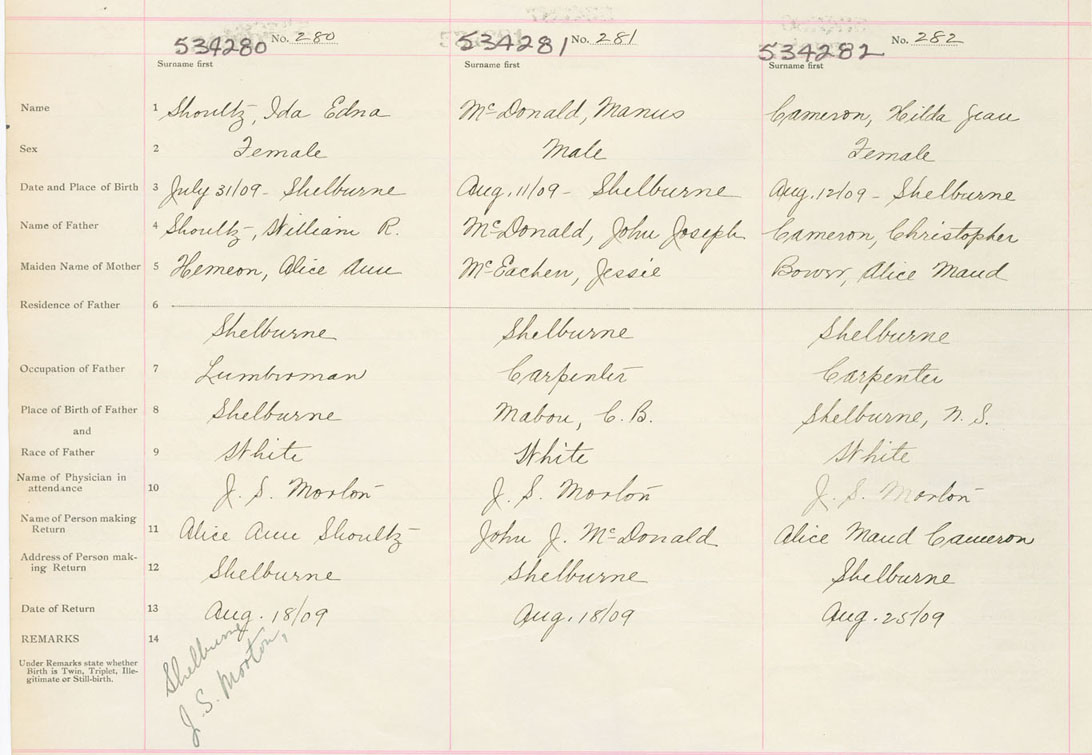 534280 No. 280 534281 No. 281 534282 No. 282
Surname first Surname first Surname first
Name 1 Shoultz, Ida Edna McDonald, Manus Cameron, Hilda Jean
Sex 2 Female Male Female
Date and Place of Birth 3 July 31/09 - Shelburne Aug. 11/09 - Shelburne Aug. 12/09 - Shelburne
Name of Father 4 Shoultz, William R. McDonald, John Joseph Cameron, Christopher
Maiden Name of Mother 5 Hemeon, Alice Ann McEachen, Jessie Bower, Alice Maud
Residence of Father 6
Shelburne Shelburne Shelburne
Occupation of Father 7 Lumberman Carpenter Carpenter
Place of Birth of Father 8 Shelburne Mabou, C.B. Shelburne, N.S.
and
Race of Father 9 White White White
Name of Physician in
attendance 10 J. S. Morton J. S. Morton J. S. Morton
Name of Person making
Return 11 Alice Ann Shoultz John J. McDonald Alice Maud Cameron
Address of Person mak-
ing Return 12 Shelburne Shelburne Shelburne
Date of Return 13 Aug. 18/09 Aug. 18/09 Aug. 25/09
REMARKS 14
Under Remarks state whether
Birth is Twin, Triplet, Ille-
gitimate or Still-birth.
Shelburne
J. S. Morton,